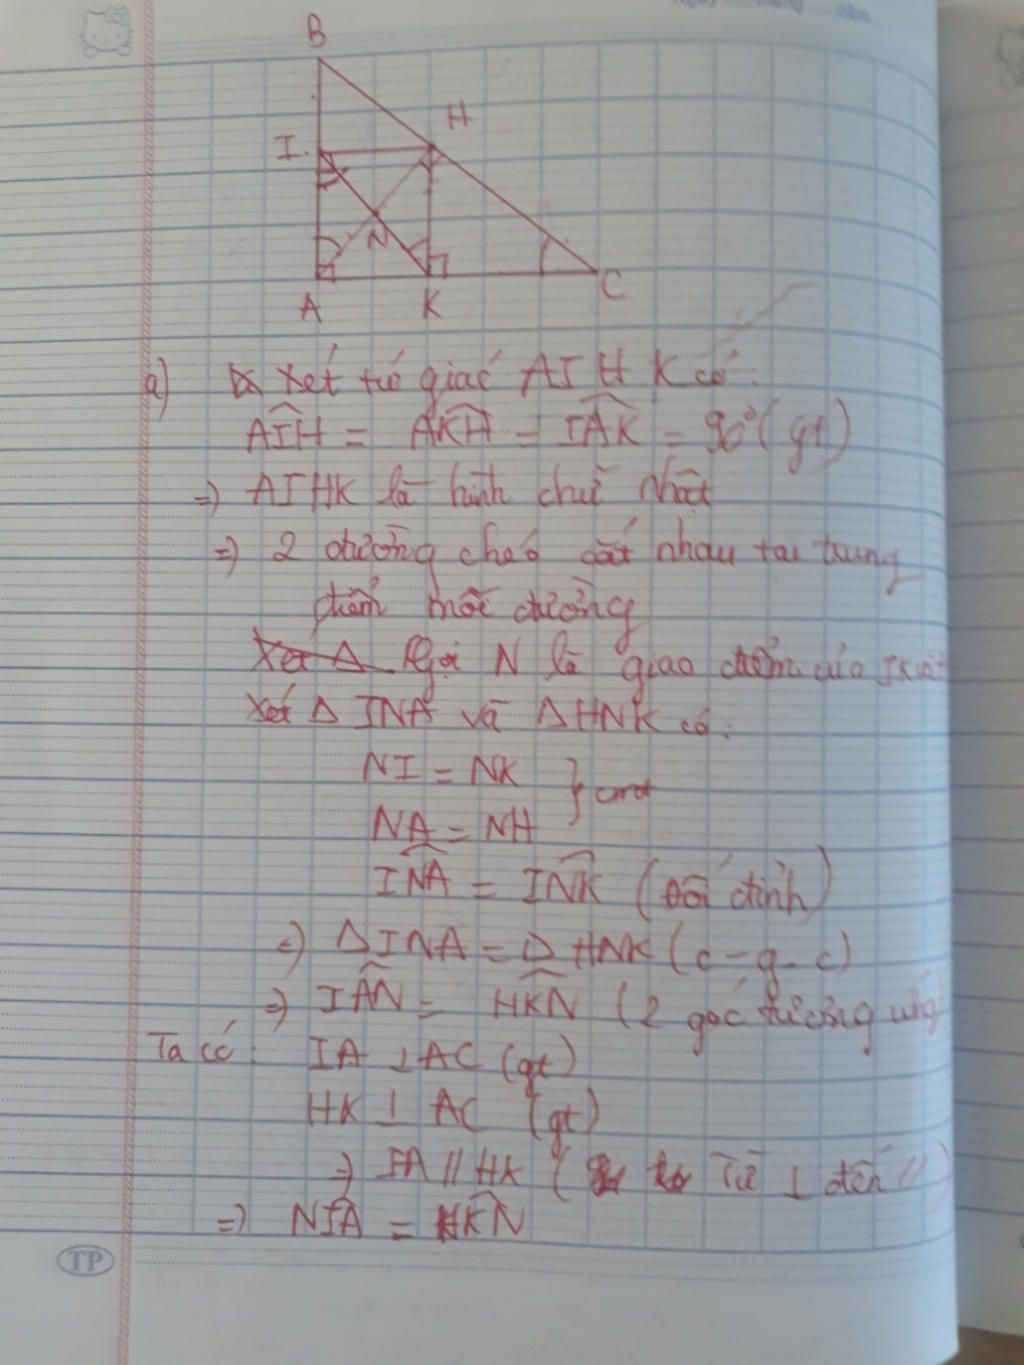 B
H
I
N
A
K
C
a) Xét tứ giác AIHK có:
AIH = AKH = IAK = 90° (gt)
=) AIHK là hình chữ nhật
=) 2 đường chéo cắt nhau tại trung
điểm mỗi đường
Xét Δ Gọi N là giao điểm của IK và
Xét Δ INA và Δ HNK có:
NI = NK } cmt
NA = NH
INA = INK (Đối đỉnh)
=) Δ INA = Δ HNK (c-g-c)
=) IAN = HKN (2 góc tương ứng)
Ta có: IA ⊥ AC (gt)
HK ⊥ AC (gt)
=) IA // HK ( Từ ⊥ đến //)
=) NIA = HKN
TP